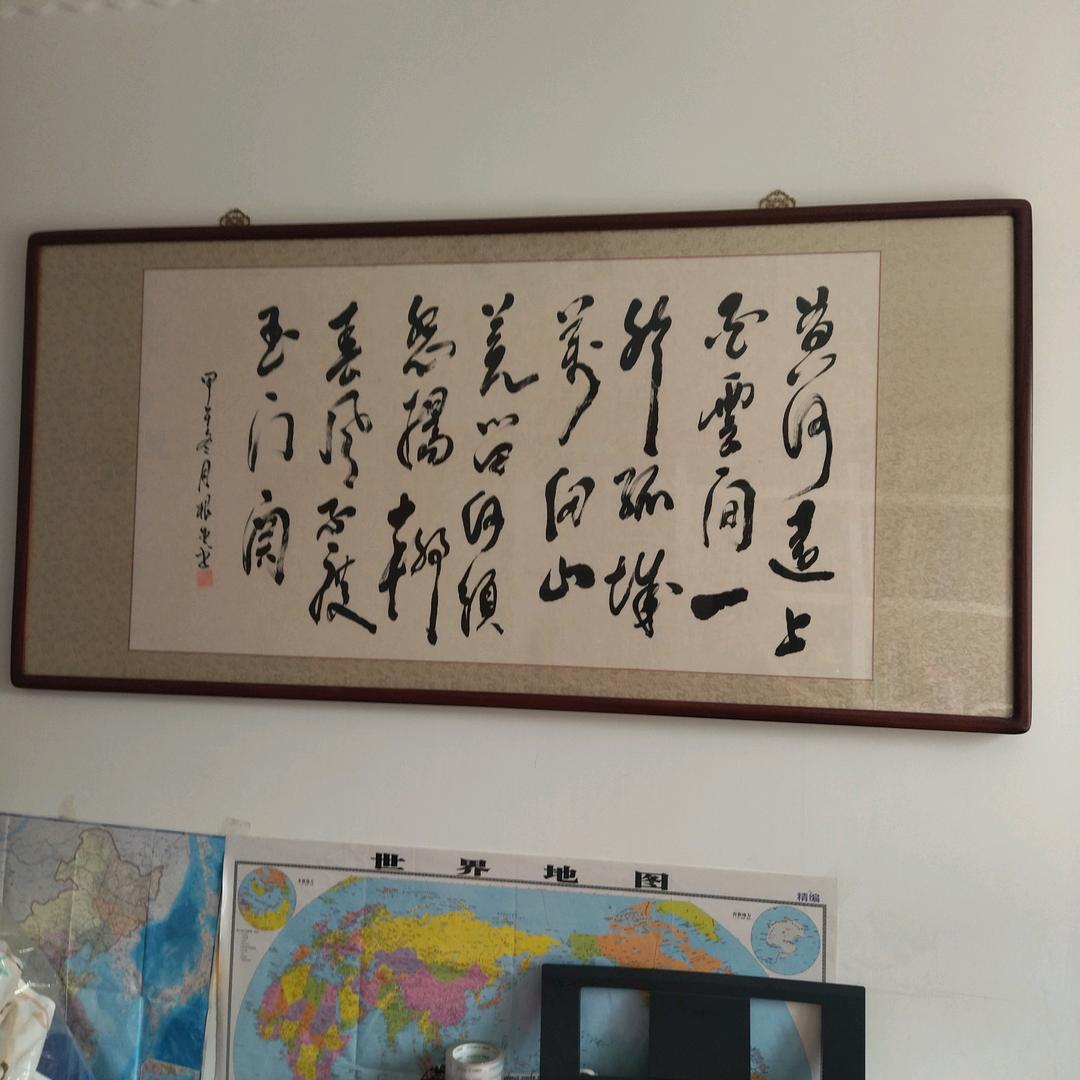 黄河遠上
白雲间一
片孤城
萬仞山
羌笛何须
怨楊柳
春风不度
玉门関
甲午冬月
世界地图
精编